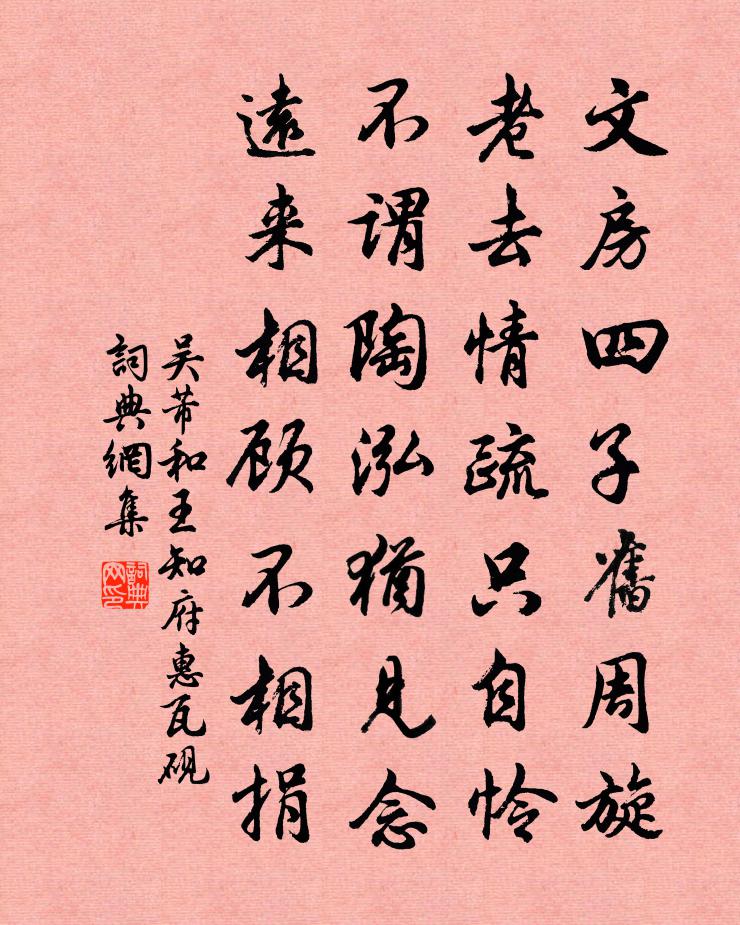 文房四子舊周旋
老去情疏只自怜
不谓陶泓猶見念
遠来相顾不相捐
吴芾和王知府惠瓦砚
詞典網集
詞典网印